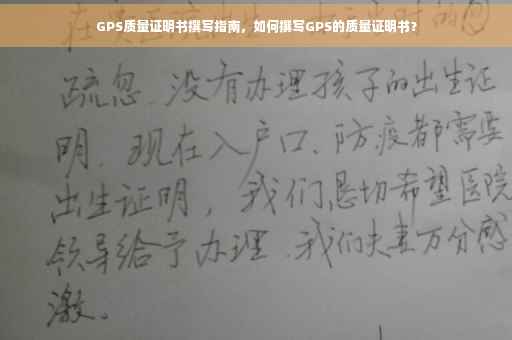 GPS质量证明书撰写指南，如何撰写GPS的质量证明书？
疏忽、没有办理孩子的出生证
明、现在入户口、防疫都需要
出生证明，我们恳切希望医院
领导给予办理、我们夫妻万分感
激。